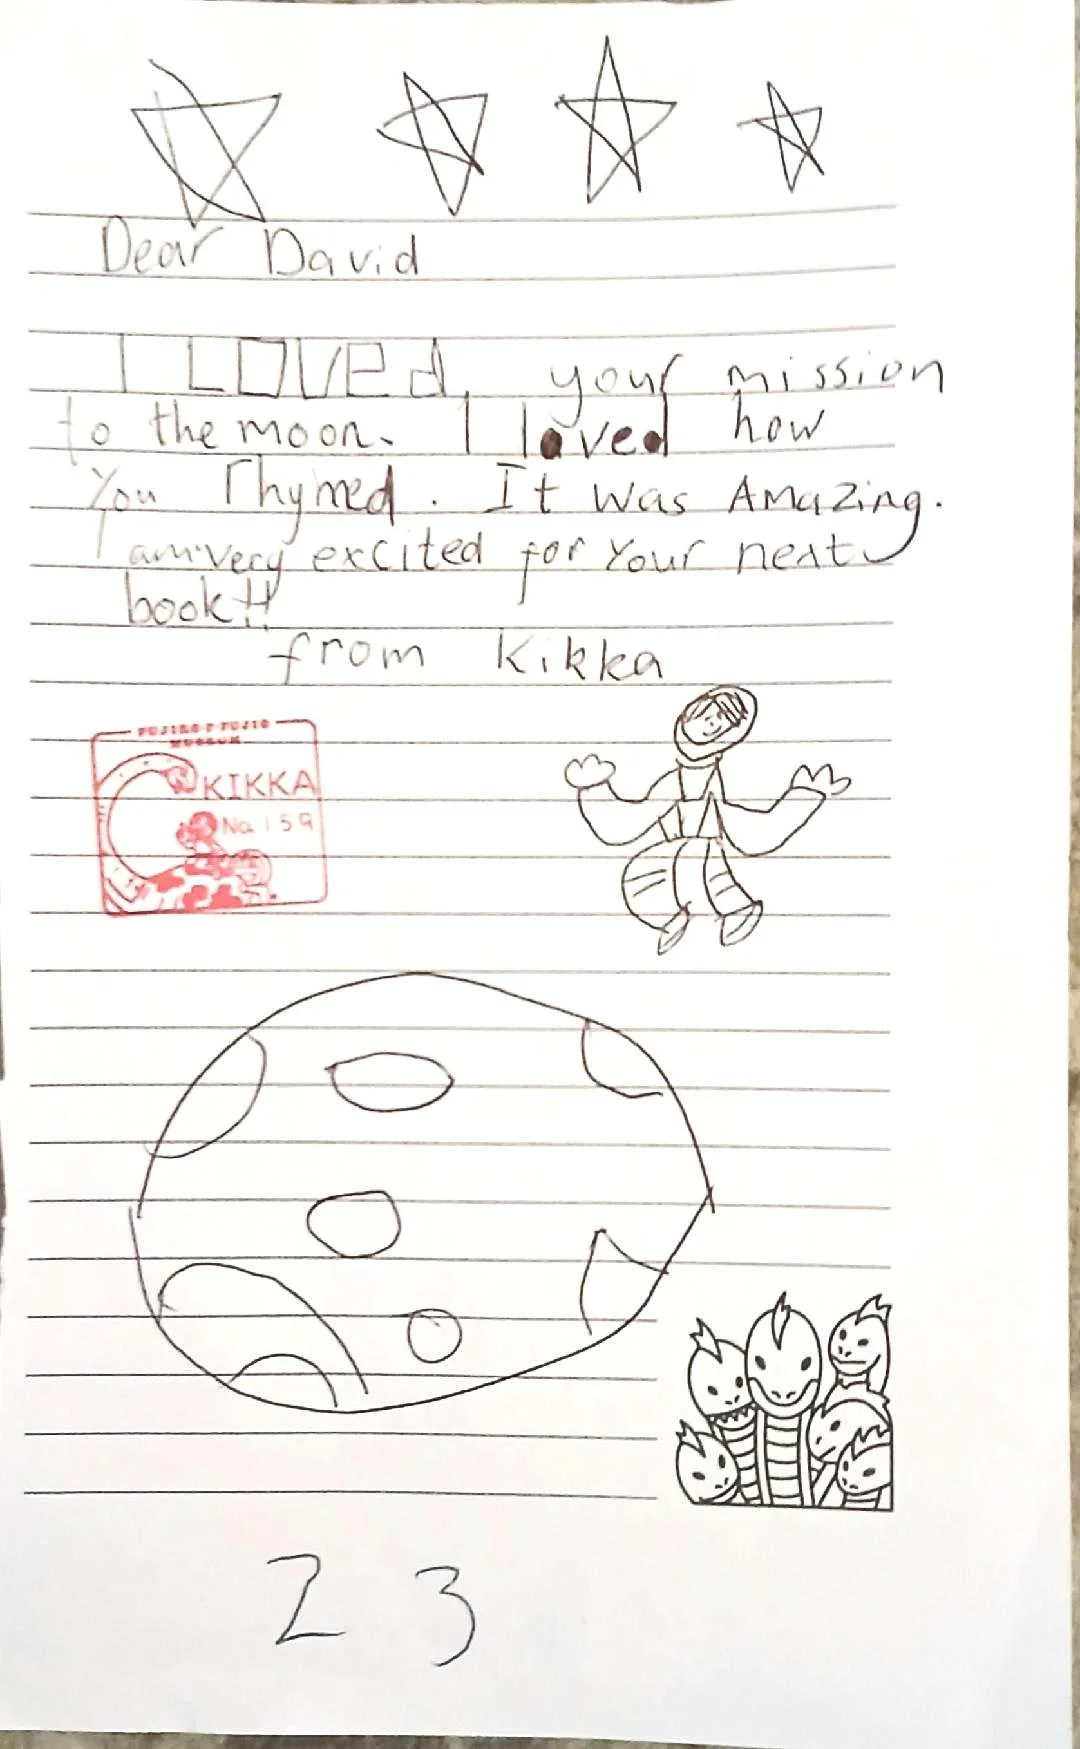 Dear David
I LOVEd your mission
to the moon. I loved how
You rhymed. It was Amazing.
I am very excited for Your next
book!!
from Kikka
FUJIKO·F·FUJIO
MUSEUM
KIKKA
No. 159
23